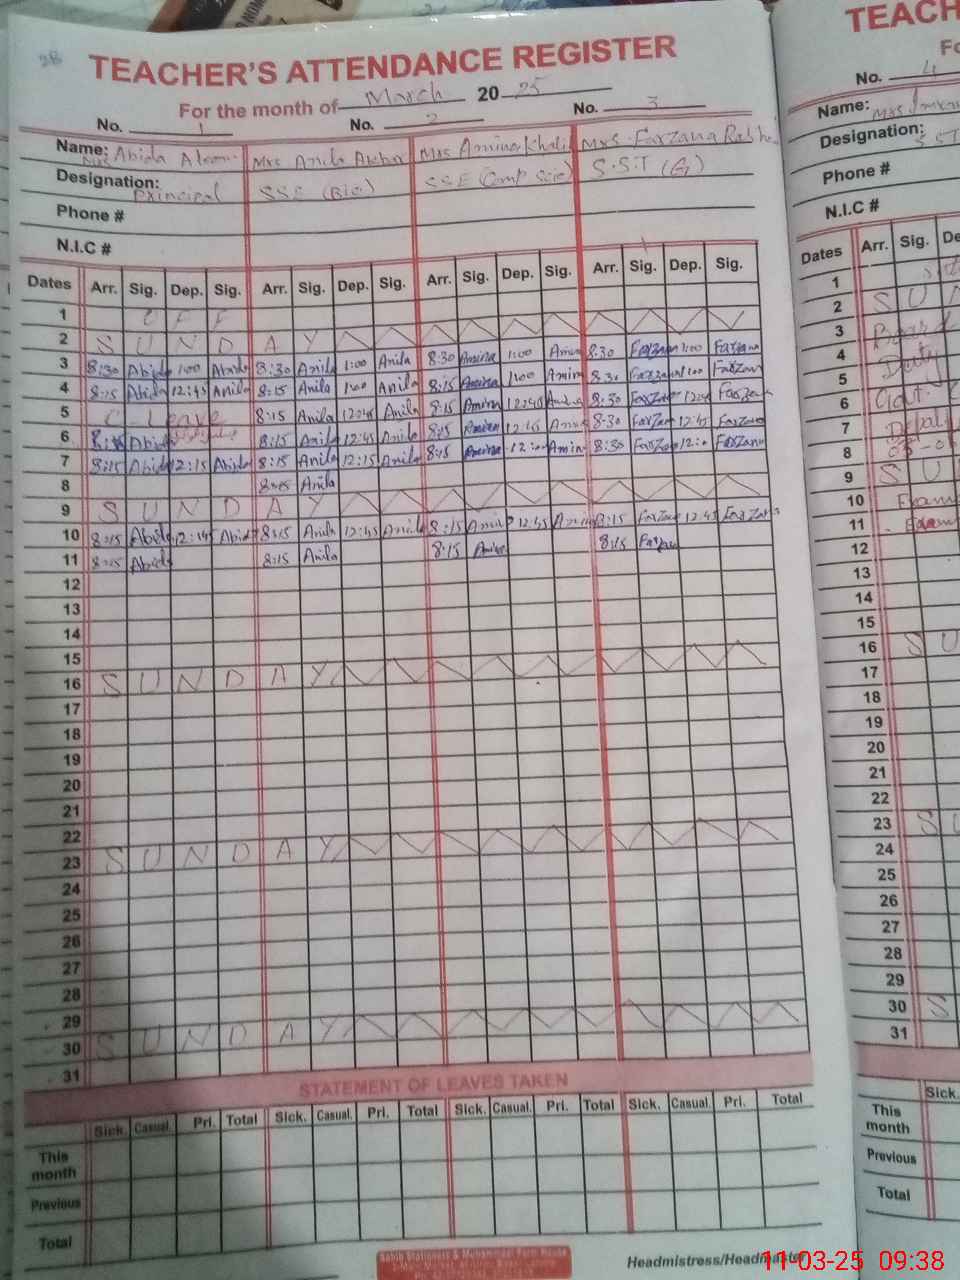 28
TEACHER'S ATTENDANCE REGISTER
For the month of March 20 25
No. 1 No. 2 No. 3
Name: Mrs Abida Mrs Anila Akbar Mrs Amina Khalid Mrs Farzana
Designation: Principal SSE (Bio) SSE (Comp Scie) S.S.T (G)
Phone #
N.I.C #
Dates Arr. Sig. Dep. Sig. Arr. Sig. Dep. Sig. Arr. Sig. Dep. Sig. Arr. Sig. Dep. Sig.
1 OFF
2 S U N D A Y
3 8:30 Abida 1:00 Abida 8:30 Anila 1:00 Anila 8:30 Amina 1:00 Amin 8:30 Farzana 1:00 Farzana
4 8:15 Abida 12:45 Abida 8:15 Anila 1:00 Anila 8:15 Amina 1:00 Amin 8:30 Farzana 1:00 Farzan
5 C. Leave 8:15 Anila 12:45 Anila 8:15 Amina 12:45 Amina 8:30 Farzan 12:45 Farzana
6 8:15 Abida 8:15 Anila 12:45 Anila 8:15 Amina 12:45 Amin 8:30 Farzan 12:45 Farzana
7 8:15 Abida 12:15 Abida 8:15 Anila 12:15 Anila 8:15 Amina Amin 8:30 Farzan Farzana
8 8:15 Anila
9 S U N D A Y
10 8:15 Abida 12:45 Abida 8:15 Anila 12:45 Anila 8:15 Amin 12:45 Amin 8:15 Farzan 12:45 Farzana
11 8:15 Abida 8:15 Anila 8:15 Amina 8:15 Farzan
12
13
14
15
16 S U N D A Y
17
18
19
20
21
22
23 S U N D A Y
24
25
26
27
28
29
30 S U N D A Y
31
STATEMENT OF LEAVES TAKEN
Sick. Casual. Pri. Total Sick. Casual. Pri. Total Sick. Casual. Pri. Total Sick. Casual. Pri. Total
This month
Previous
Total
Headmistress/Headmaster
TEACH
Fo
No. 4
Name: Mrs
Designation: SST
Phone #
N.I.C #
Dates Arr. Sig. De
1
2 S U N
3
4
5
6 Govt.
7
8
9 S U
10 Exam
11 Exam
12
13
14
15
16 S U
17
18
19
20
21
22
23 S U
24
25
26
27
28
29
30 S
31
Sick.
This month
Previous
Total
11-03-25 09:38